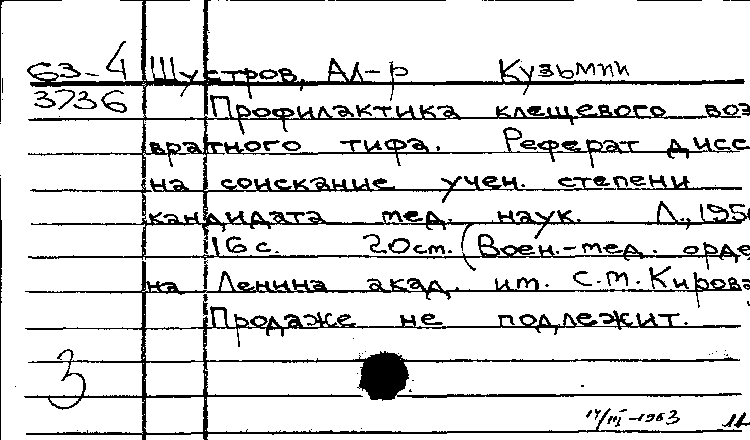 63-4 Шустров, Ал-р Кузьмич
3736 Профилактика клещевого воз
вратного тифа. Реферат дисс
на соискание учен. степени
кандидата мед. наук. Л., 195
16 с. 20 см. (Воен.-мед. орде
на Ленина акад. им. С.М. Кирова
Продаже не подлежит.
3
14/III-1963